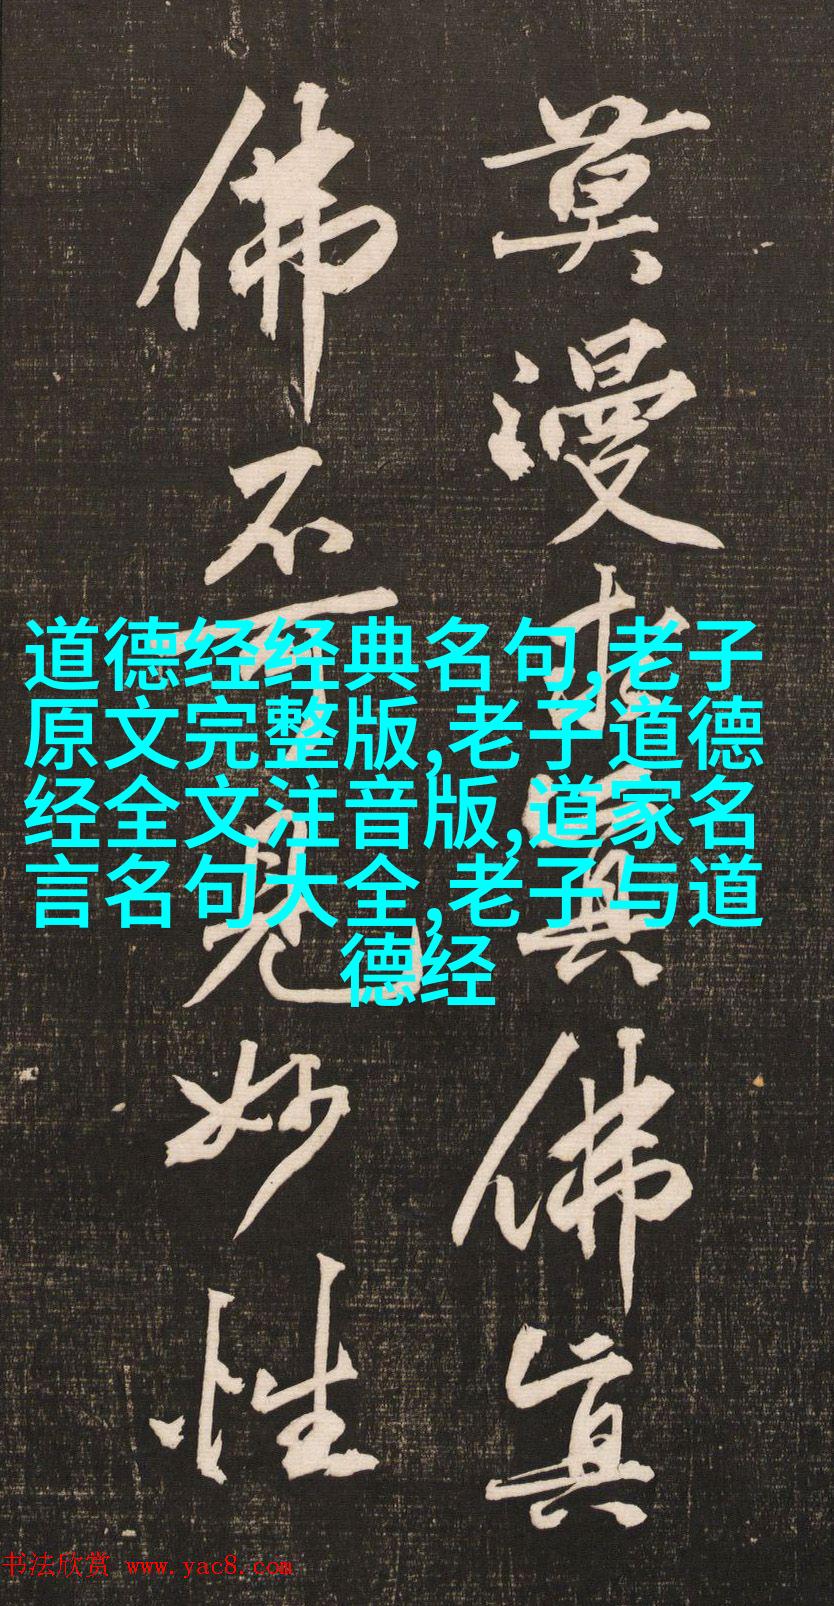 莫漫求真佛真
佛不可見妙性
道德经经典名句,老子
原文完整版,老子道德
经全文注音版,道家名
言名句大全,老子与道
德经
书法欣赏 www.yac8.com